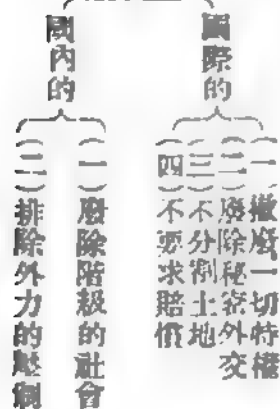 國際的
(一)撤廢一切特權
(二)廢除秘密外交
(三)不分割土地
(四)不要求賠償
國內的
(一)廢除階級的社會
(二)排除外力的壓制